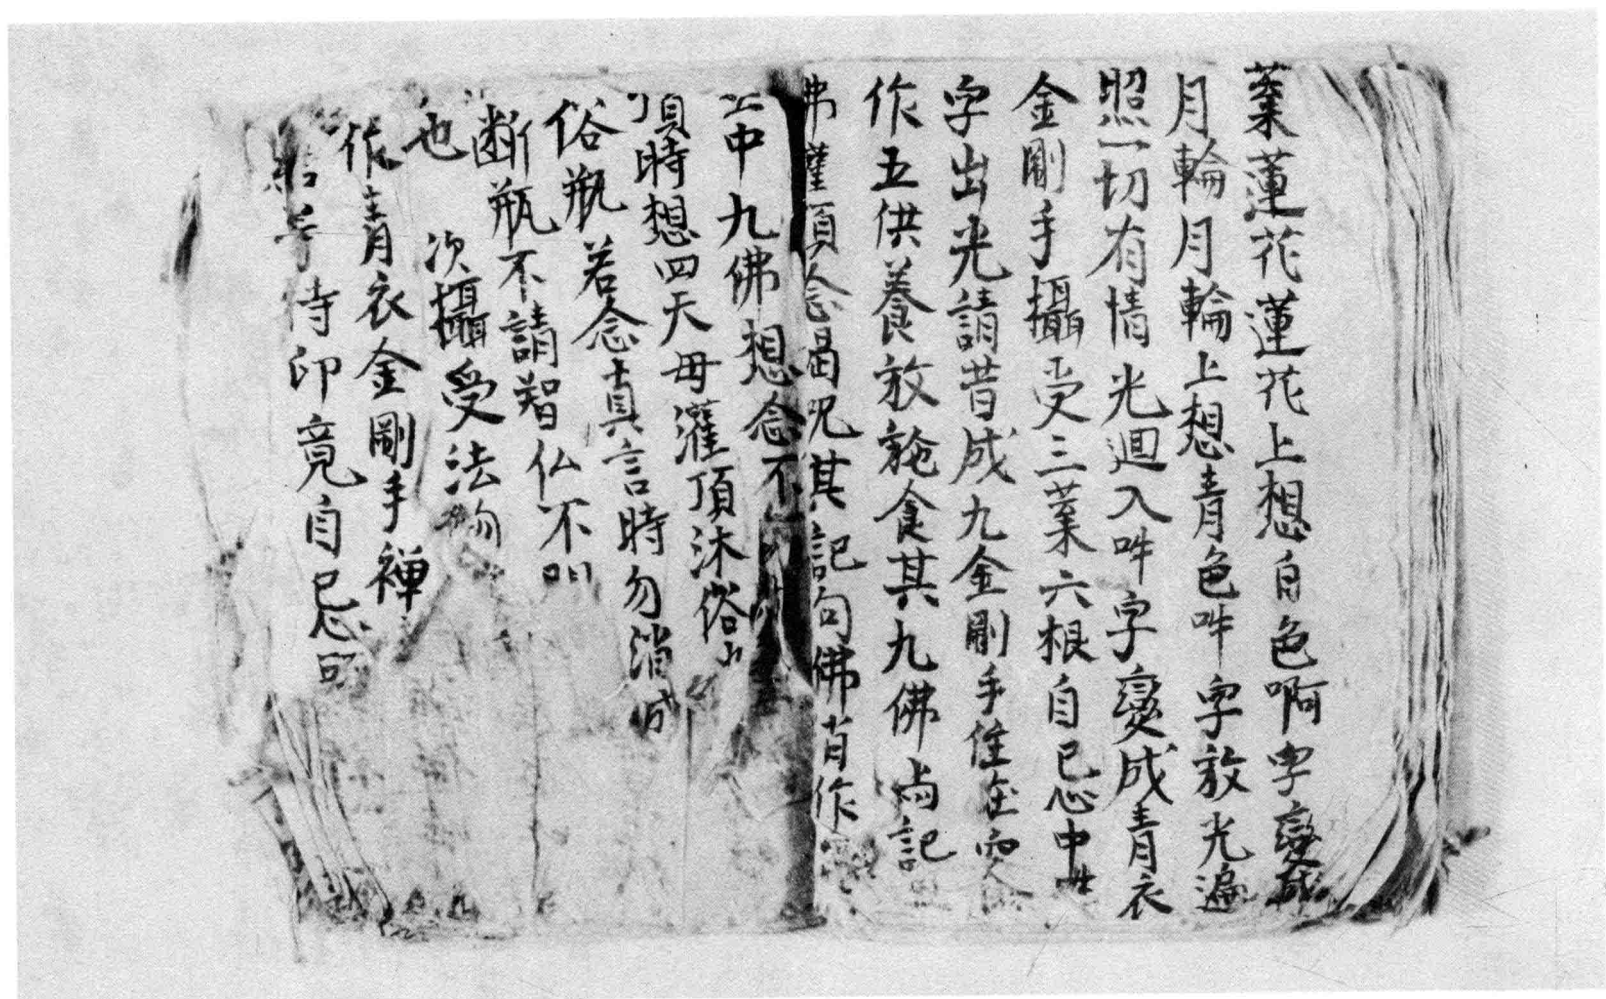 葉蓮花蓮花上想白色啊字變成
月輪月輪上想青色吽字放光遍
照一切有情光迴入吽字變成青衣
金剛手攝受三葉六根自己心中
字出光請昔成九金剛手住在
作五供養放施食其九佛 記
佛灌頂念曷咒其記句佛肖作
中九佛想念不
頂時想四天毋灌頂沐俗
俗瓶若念真言時勿消成
断瓶不請智仏不
也 次攝受法
作青衣金剛手禪
待印竟自己心